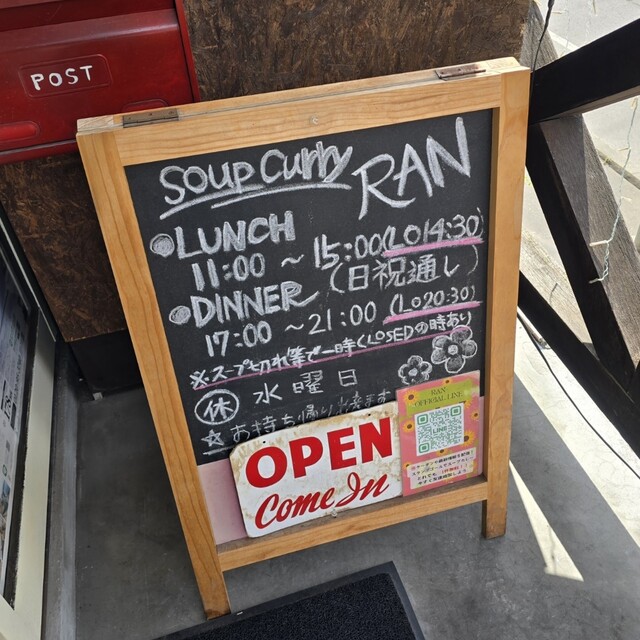 POST
SOUP Curry RAN
●LUNCH
11:00 ~ 15:00 (LO14:30)
(日祝通し)
●DINNER
17:00 ~21:00 (LO20:30)
※スープ切れ等で一時CLOSEDの時あり
休 水曜日
☆お持ち帰り
OPEN
Come In
RAN
OFFICIAL LINE
LINE